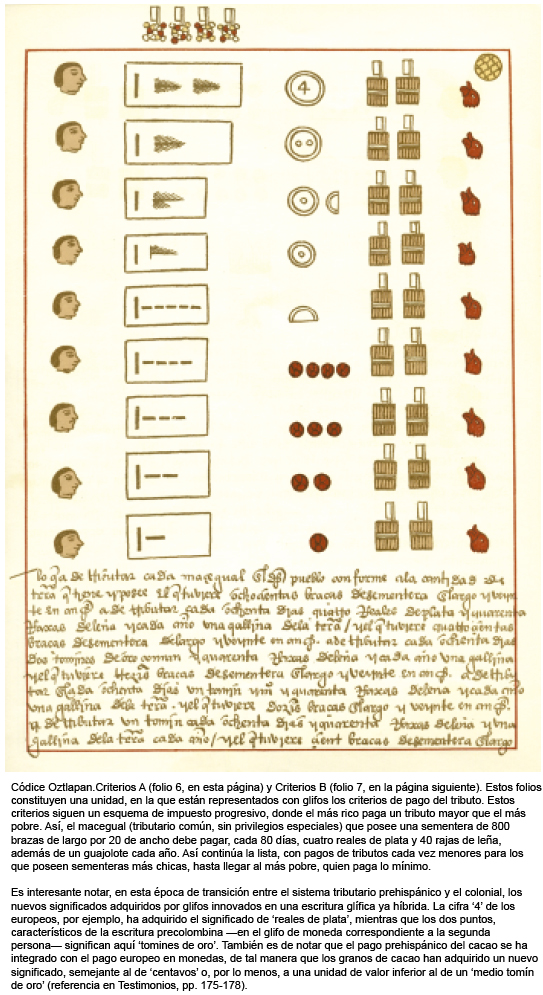 4
lo q̃ a de tributar cada maçegual
pueblo conforme a la cantidad de
tierra q̃ tiene y posee
ochocientas braças de sementera
largo y veyn
te en
a de tributar cada ochenta dias quatro Reales de plata y quarenta
Raxas de leña y cada año una gallina de la tierra / y el q̃ tuviere quatroçientas
braças de sementera de largo y veynte en
a de tributar cada ochenta dias
dos tomines de oro comun y quarenta Raxas de leña y cada año una gallina
y el q̃ tuviere
braças de sementera
largo y veynte en
tar cada ochenta dias un tomin
y quarenta Raxas de leña y cada año
una gallina de la tierra. y el q̃ tuviere
braças
largo y veynte en
de tributar un tomin cada ochenta dias y quarenta Raxas de leña y una
gallina de la tierra cada año / y el q̃ tuviere
braças de sementera
largo
Códice Oztlapan.Criterios A (folio 6, en esta página) y Criterios B (folio 7, en la página siguiente). Estos folios
constituyen una unidad, en la que están representados con glifos los criterios de pago del tributo. Estos
criterios siguen un esquema de impuesto progresivo, donde el más rico paga un tributo mayor que el más
pobre. Así, el macegual (tributario común, sin privilegios especiales) que posee una sementera de 800
brazas de largo por 20 de ancho debe pagar, cada 80 días, cuatro reales de plata y 40 rajas de leña,
además de un guajolote cada año. Así continúa la lista, con pagos de tributos cada vez menores para los
que poseen sementeras más chicas, hasta llegar al más pobre, quien paga lo mínimo.
Es interesante notar, en esta época de transición entre el sistema tributario prehispánico y el colonial, los
nuevos significados adquiridos por glifos innovados en una escritura glífica ya híbrida. La cifra ‘4’ de los
europeos, por ejemplo, ha adquirido el significado de ‘reales de plata’, mientras que los dos puntos,
característicos de la escritura precolombina —en el glifo de moneda correspondiente a la segunda
persona— significan aquí ‘tomines de oro’. También es de notar que el pago prehispánico del cacao se ha
integrado con el pago europeo en monedas, de tal manera que los granos de cacao han adquirido un nuevo
significado, semejante al de ‘centavos’ o, por lo menos, a una unidad de valor inferior al de un ‘medio tomín
de oro’ (referencia en Testimonios, pp. 175-178).